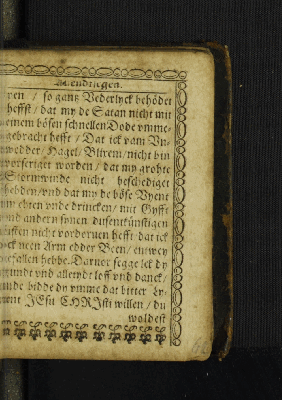 Avendingen.
ren / so gantz Vederlyck behödet
hefft / dat my de Satan nicht mit
einem bösen schnellen Dode vmme-
gebracht hefft / Dat ick vam Vn-
wedder / Hagel / Blixem / nicht bin
worden / dat my grote
Stormwinde nicht beschediget
hebben / vnd dat my de böse Vyent
ethen vnde drincken / mit Gyfft
vnd andern synen dusentkünstigen
nicht vorderuen hefft dat ick
neen Arm edder Been / entwey
gefallen hebbe. Darvor segge ick dy
vnd alletydt loff vnd danck /
vnde bidde dy vmme dat bitter Ly-
JESu CHRIsti willen / du
woldest